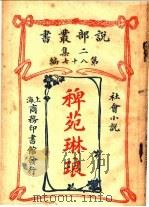 說部叢書
二集
第八十七編
社會小說
稗苑琳琅
上海商務印書館發行